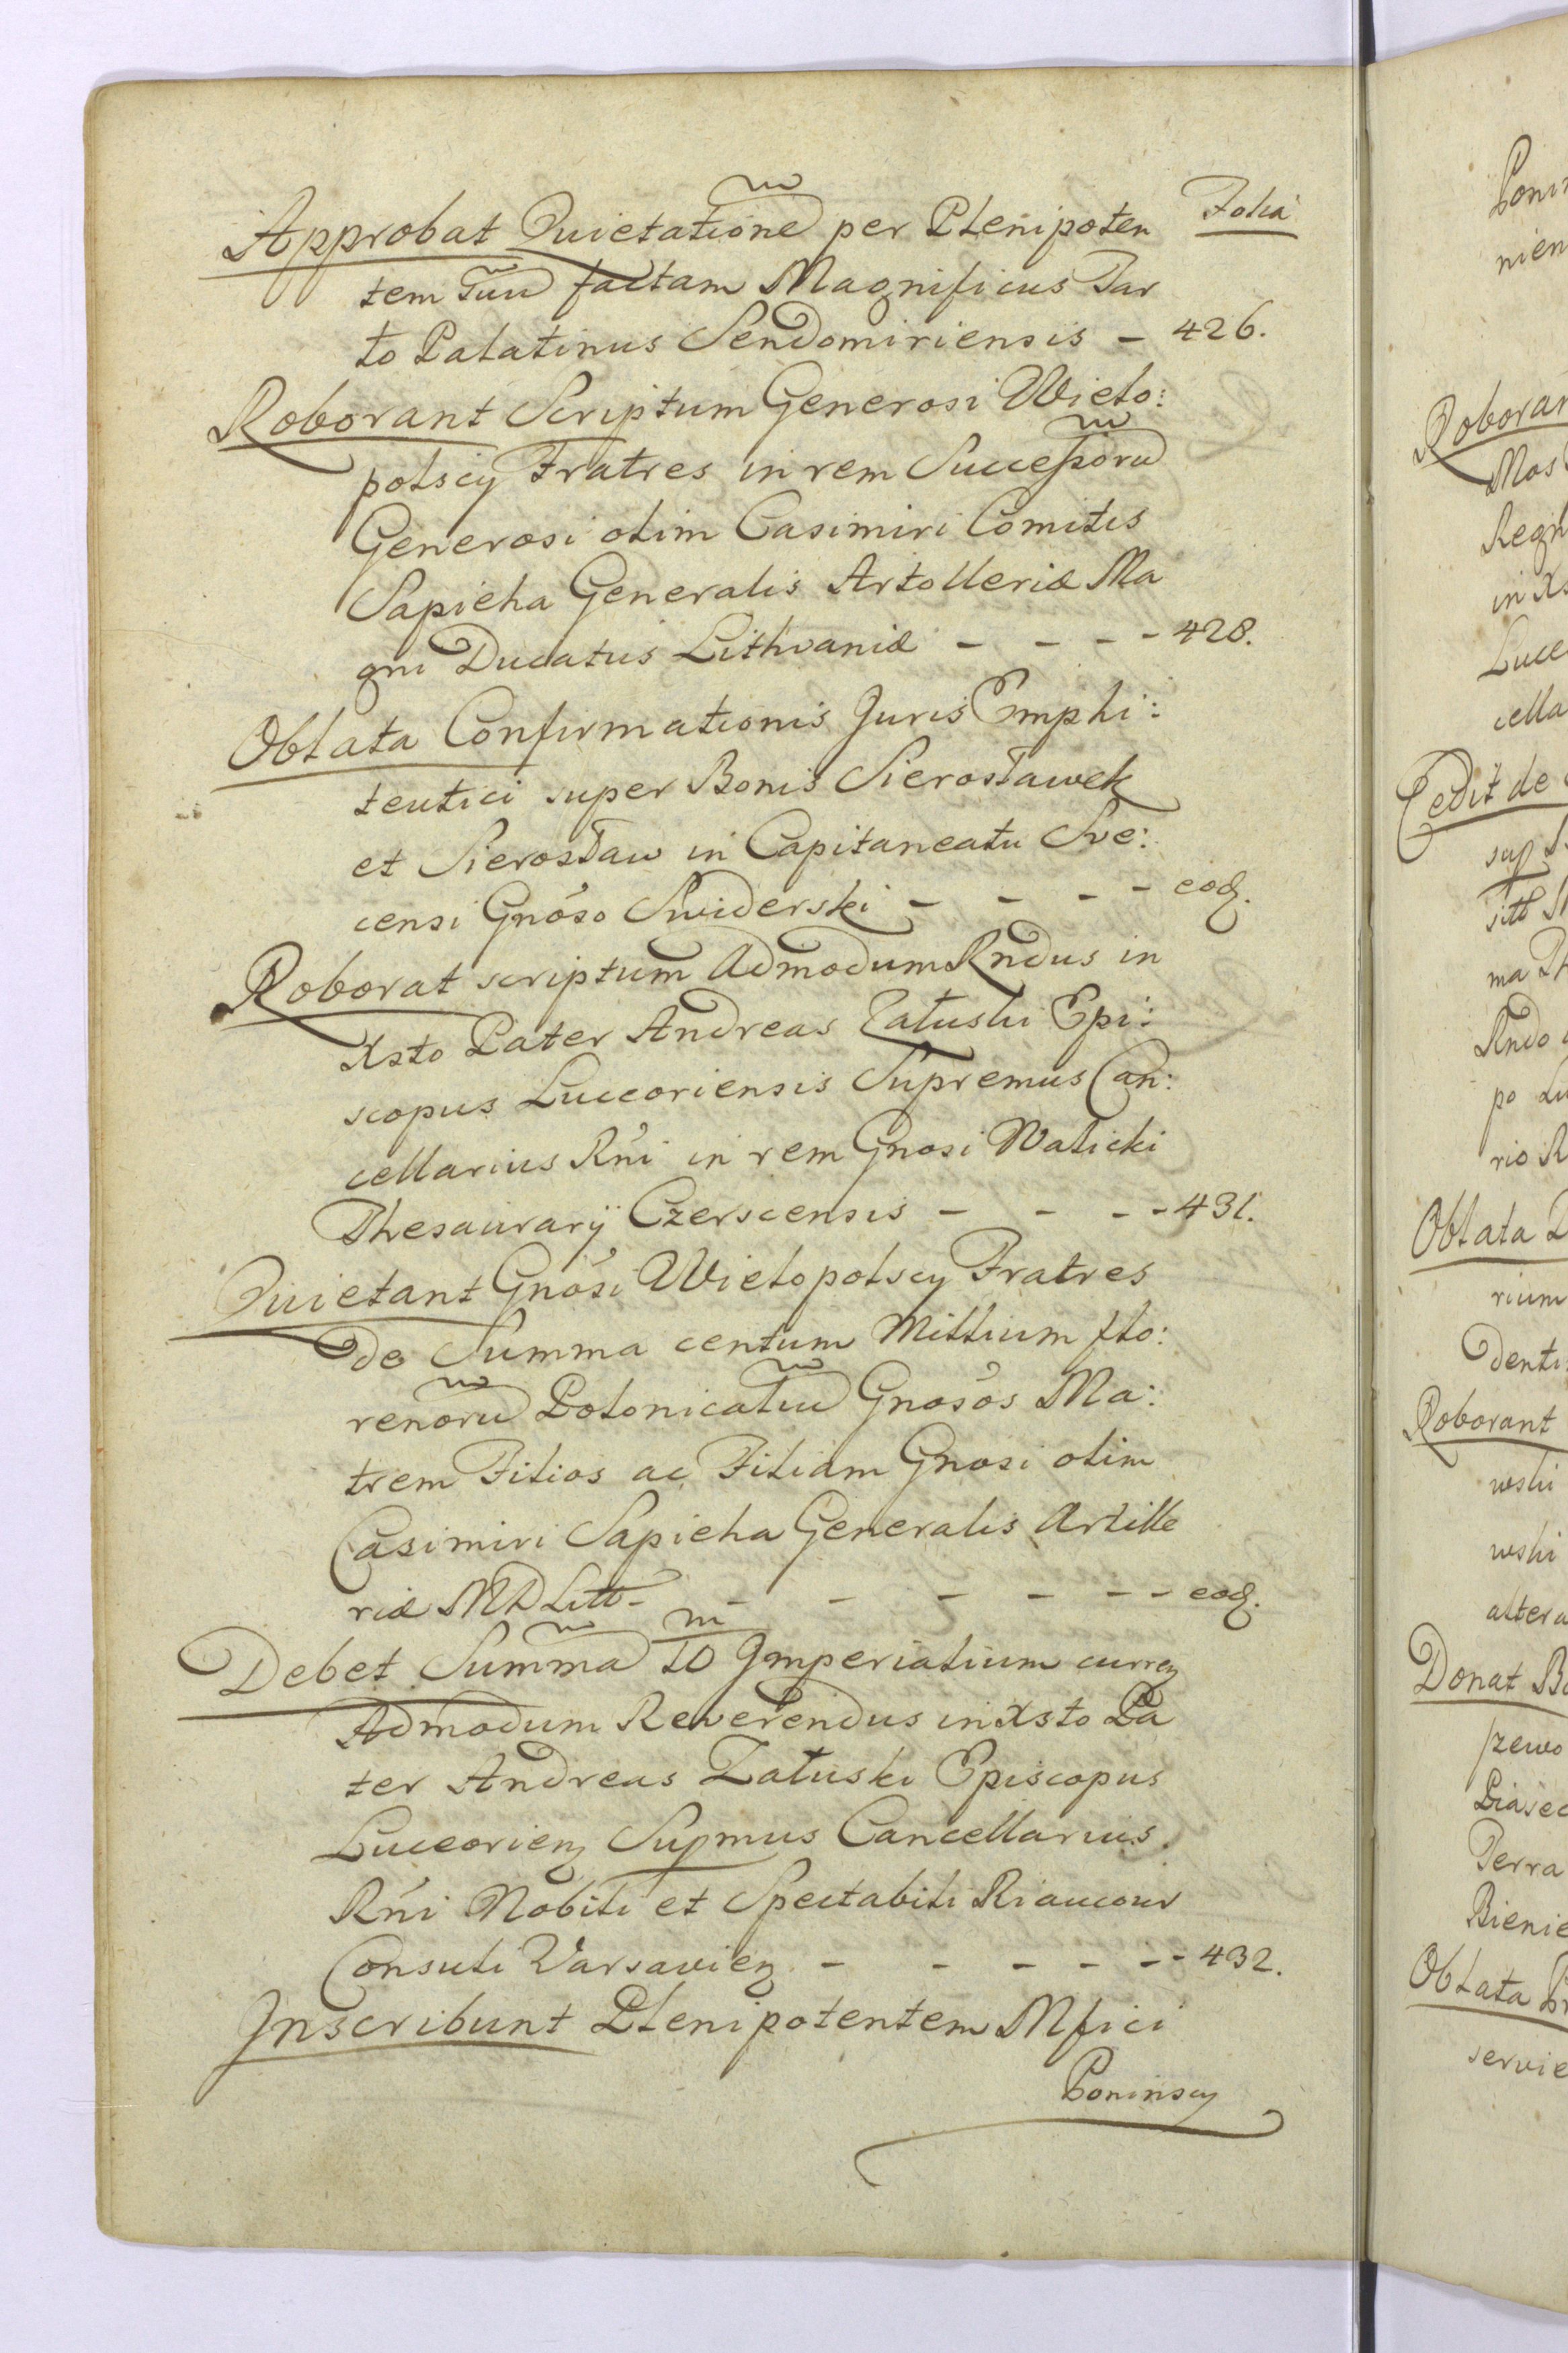 Folia
Approbat Quietatione per Plenipoten
tem Suu factam Magnificus Tar
to Palatinus Sendomiriensis - 426.
Roborant Scriptum Generosi Wielo:
polscy Fratres in rem Successoru
Generosi olim Casimiri Comitis
Sapieha Generalis Artolleriæ Ma
gni Ducatus Lithvaniæ - - - - 428.
Oblata Confirmationis Juris Emphi:
teutici super Bonis Sierosławek
et Sierosław in Capitaneatu Sve:
censi Gnoso Swiderski - - - - eod.
Roborat scriptum Admodum Rndus in
Xsto Pater Andreas Załuski Epi:
scopus Luceoriensis Supremus Can:
cellarius Rni in rem Gnosi Walicki
Thesaurarÿ Czerscensis - - - - 431.
Quietant Gnosi Wielopolscy Fratres
de Summa centum Millium flo:
renoru Polonicaliu Gnosos Ma:
trem Filios ac Filiam Gnosi olim
Casimiri Sapieha Generalis Artille
riæ MD Litt - - - - - - eod.
Debet Summa 10 m Imperialium curren
Admodum Reverendus in Xsto Pa
ter Andreas Załuski Episcopus
Luceorien Supmus Cancellarius
Rni Nobili et Spectabili Riaucour
Consuli Varsavien - - - - - - 432.
Inscribunt Plenipotentem Mfici
Poninscy
nien
Roboran
Mos
Regn
in Xs
Luce
cella
Cedit de
sup
ma
Rndo
po Lu
rio R
Oblata
rium
denti
Roborant
wski
wski
altera
Donat Bo
szewo
Piasec
Terra
Bienie
Oblata
servie